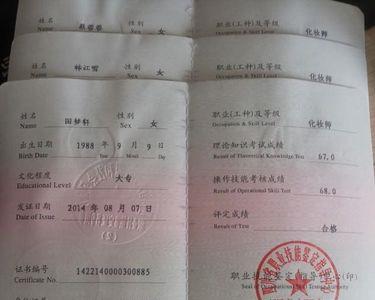 姓名 性别 职业(工种)及等级
Name Sex 女 Occupation & Skill Level 化妆师
姓名 性别 职业(工种)及等级
Name 韩江雪 Sex 女 Occupation & Skill Level 化妆师
姓名 性别 职业(工种)及等级
Name 田梦轩 Sex 女 Occupation & Skill Level 化妆师
出生日期 1988 年 9 月 9 日 理论知识考试成绩
Birth Date Year Month Day Result of Theoretical Knowledge Test 67.0
文化程度 大专 操作技能考核成绩
Educational Level Result of Operational Skill Test 68.0
发证日期 2014 年 08 月 07 日 评定成绩
Date of Issue Result of Test 合格
证书编号 1422140000300885 职业技能鉴定指导中心(印)
Certificate No. Seal of Occupational Skill Testing Authority